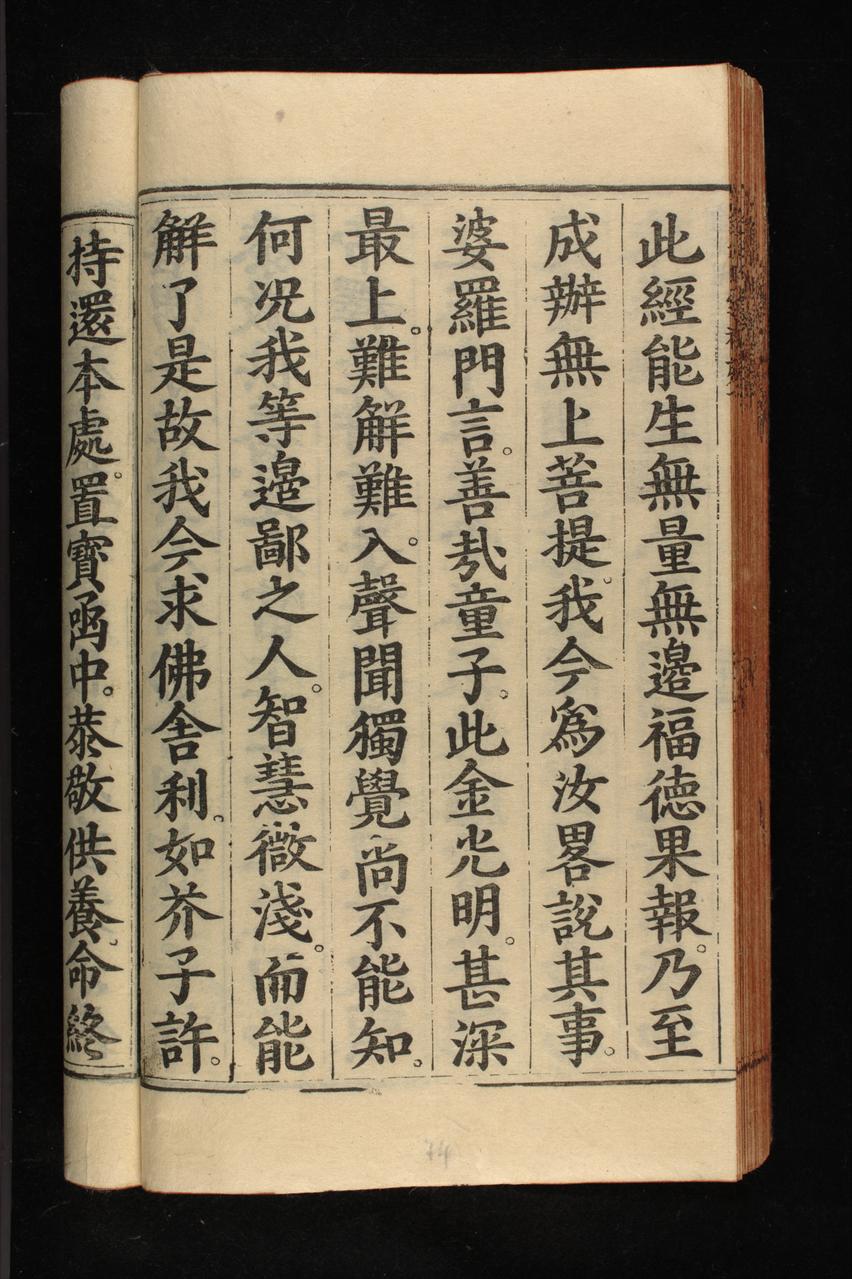 此經能生無量無邉福德果報。乃至
成辦無上菩提。我今爲汝畧說其事。
婆羅門言。善㢤童子。此金光明。甚深
最上。難解難入。聲聞獨覺尚不能知。
何况我等邉鄙之人。智慧微淺。而能
解了是故我今求佛舎利。如芥子許。
持還本處。置寳函中。恭敬供養。命終